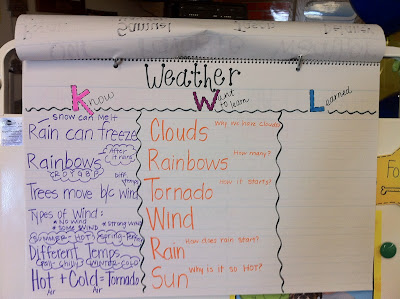 Weather
Know
Want to learn
Learned
Snow can melt
Rain can freeze
After it rains
Rainbows
ROYGBIV
Diff temps
Trees move b/c wind
Types of Wind:
• No wind • strong wind
• some wind
Summer-Hot Spring-Temp
Different Temps
Fall-chilly Winter-cold
Hot + Cold = Tornado
Air Air
Clouds Why we have clouds
Rainbows How many?
Tornado How it starts?
Wind
Rain How does rain start?
Sun Why is it so HOT?
Fo